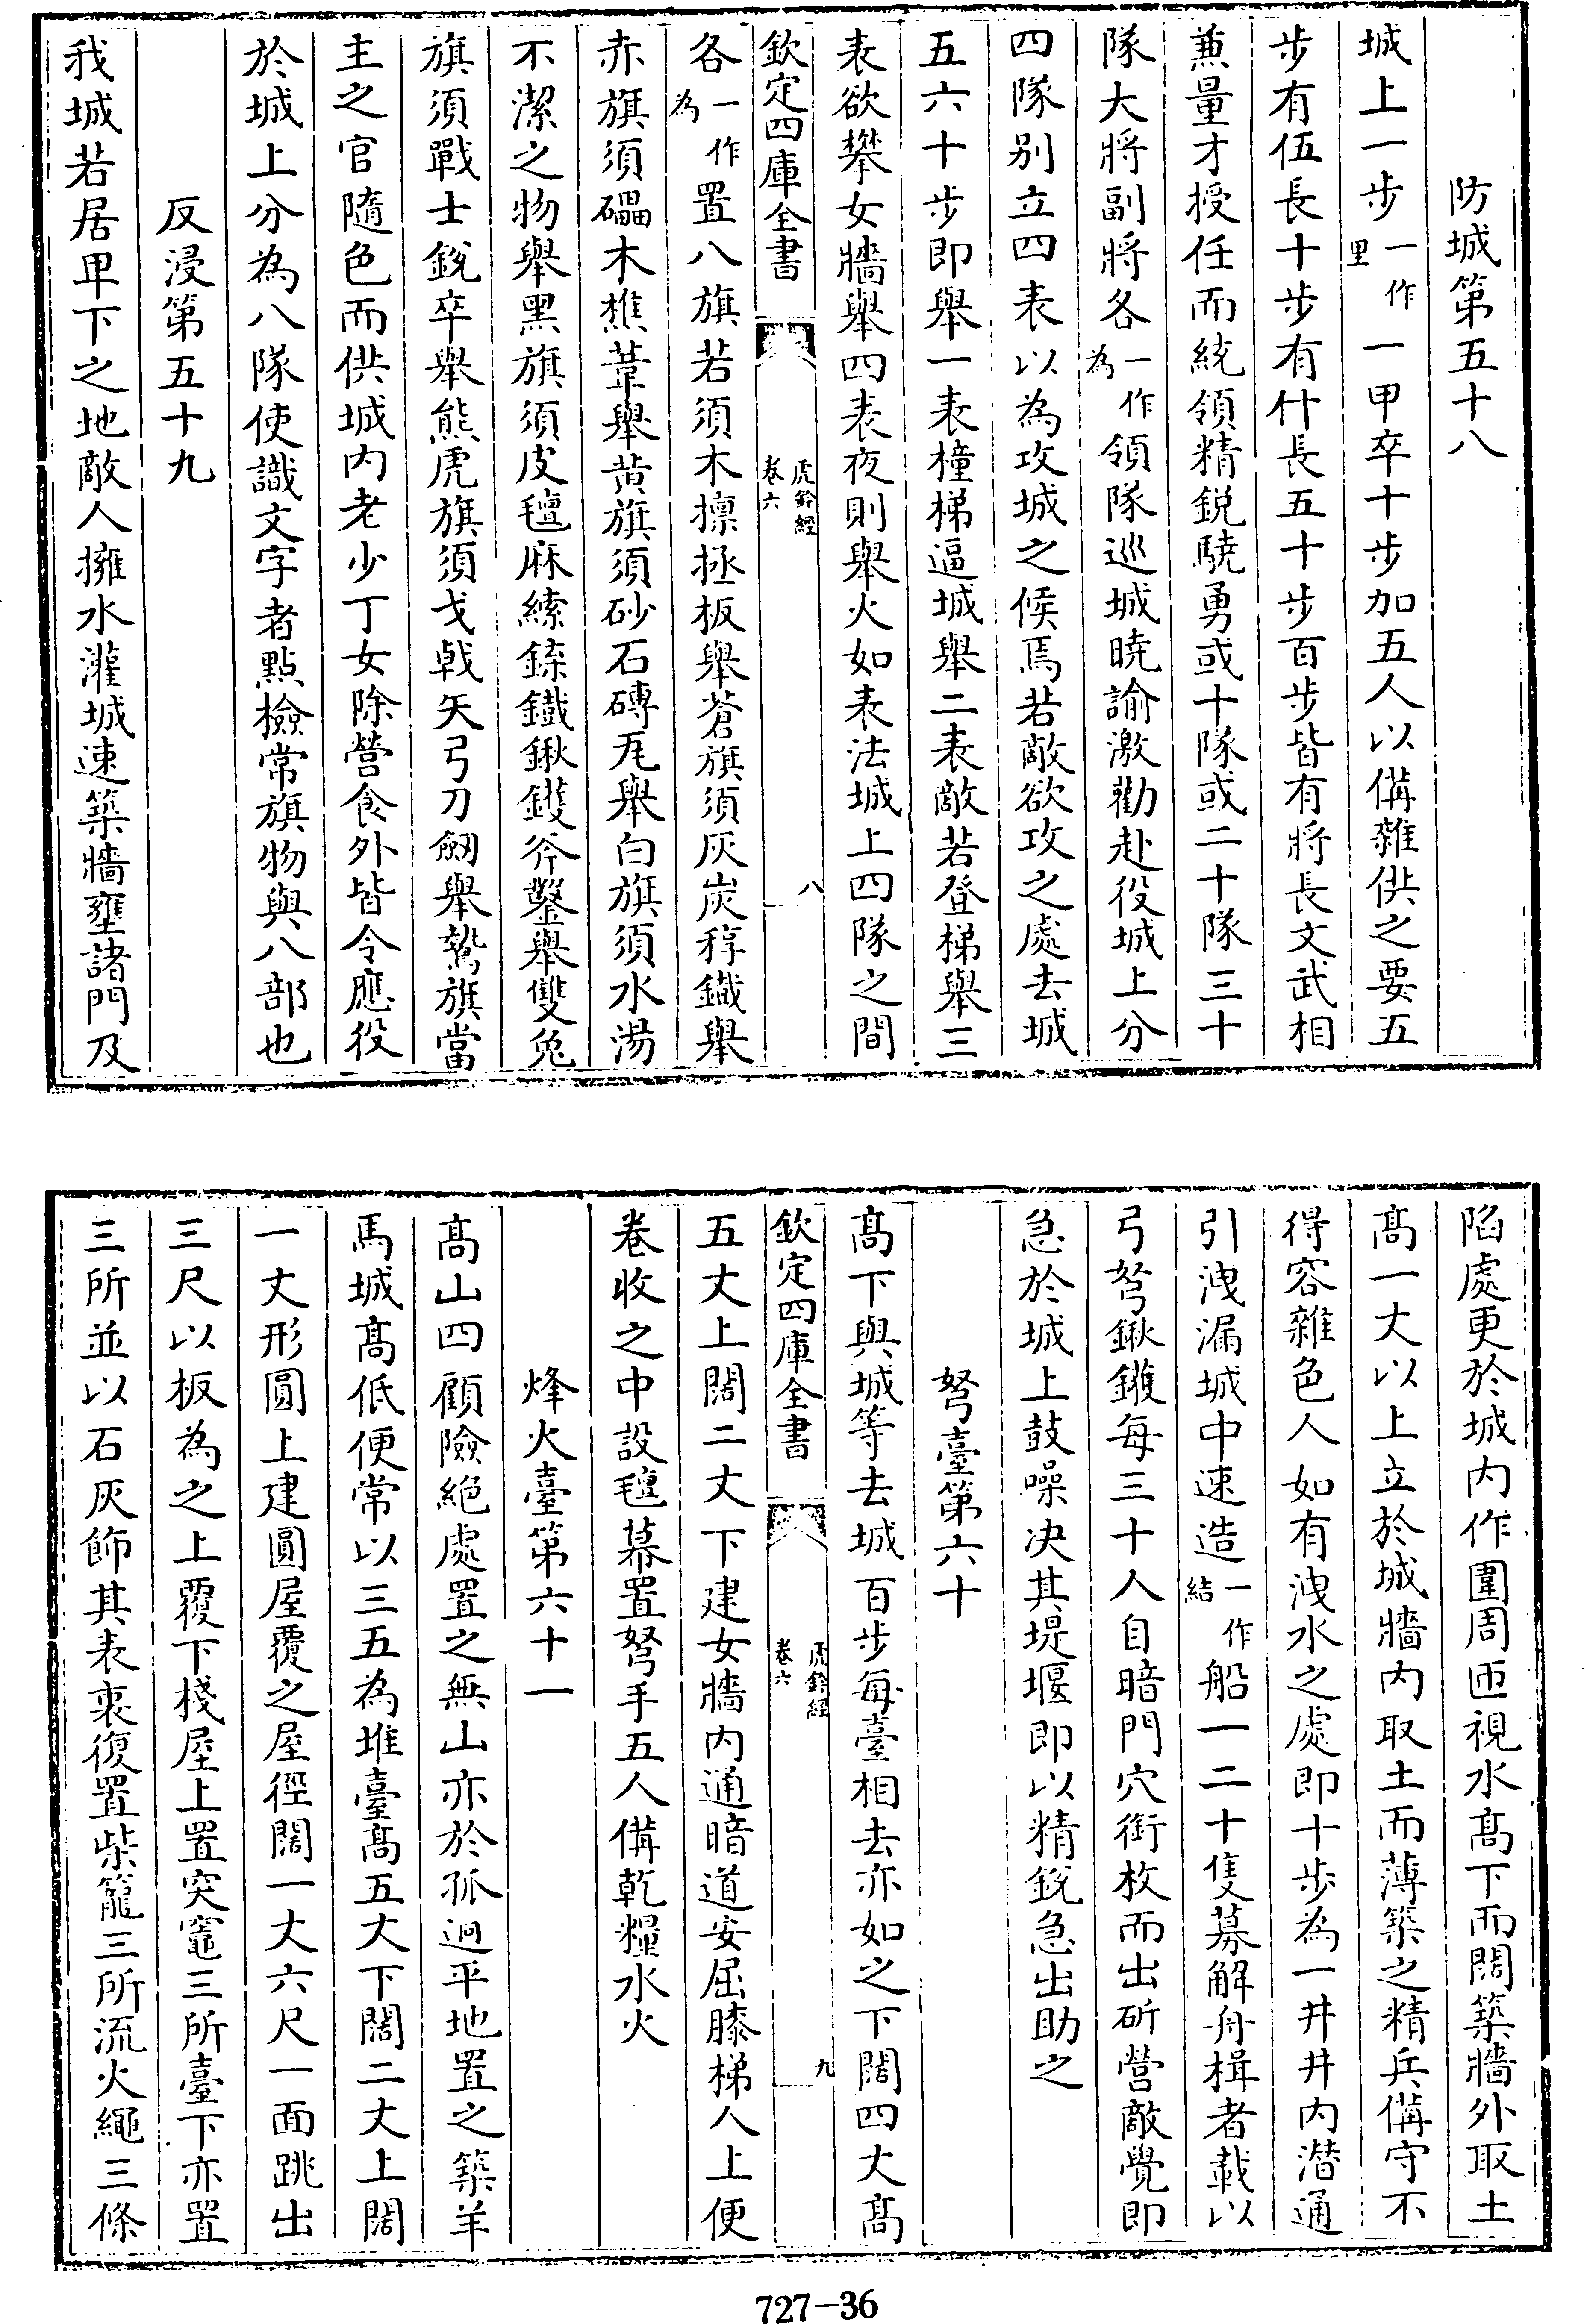 防城第五十八
城上一步一作里一甲卒十步加五人以備雜供之要五
步有伍長十步有什長五十步百步皆有將長文武相
兼量才授任而統領精銳驍勇或十隊或二十隊三十
隊大將副將各一作為領隊巡城曉諭激勸赴役城上分
四隊別立四表以為攻城之候焉若敵欲攻之處去城
五六十步即舉一表橦梯逼城舉二表敵若登梯舉三
表欲攀女牆舉四表夜則舉火如表法城上四隊之間
欽定四庫全書
虎鈐經
卷六
八
各一作為置八旗若須木檁拯板舉蒼旗須灰炭稕鐵舉
赤旗須礧木樵葦舉黄旗須砂石磚瓦舉白旗須水湯
不潔之物舉黑旗須皮氊麻縤鍒鐵鍬钁斧鑿舉雙兔
旗須戰士銳卒舉熊虎旗須戈戟矢弓刀劒舉鷙旗當
主之官隨色而供城内老少丁女除營食外皆令應役
於城上分為八隊使識文字者點檢常旗物與八部也
反浸第五十九
我城若居卑下之地敵人擁水灌城速築牆壅諸門及
陷處更於城内作圍周匝視水髙下而闊築牆外取土
髙一丈以上立於城牆内取土而薄築之精兵備守不
得容雜色人如有洩水之處即十步為一井井内潜通
引洩漏城中速造一作結船一二十隻募解舟楫者載以
弓弩鍬钁每三十人自暗門穴銜枚而出斫營敵覺即
急於城上鼓噪决其堤堰即以精銳急出助之
弩臺第六十
髙下與城等去城百步每臺相去亦如之下闊四丈髙
欽定四庫全書
虎鈐經
卷六
九
五丈上闊二丈下建女牆内通暗道安屈膝梯人上便
卷收之中設氊幕置弩手五人備乾糧水火
烽火臺第六十一
髙山四顧險絶處置之無山亦於孤迥平地置之築羊
馬城髙低便常以三五為堆臺髙五丈下闊二丈上闊
一丈形圓上建圓屋覆之屋徑闊一丈六尺一面跳出
三尺以板為之上覆下棧屋上置突竈三所臺下亦置
三所並以石灰飾其表裏復置柴籠三所流火繩三條
727-36